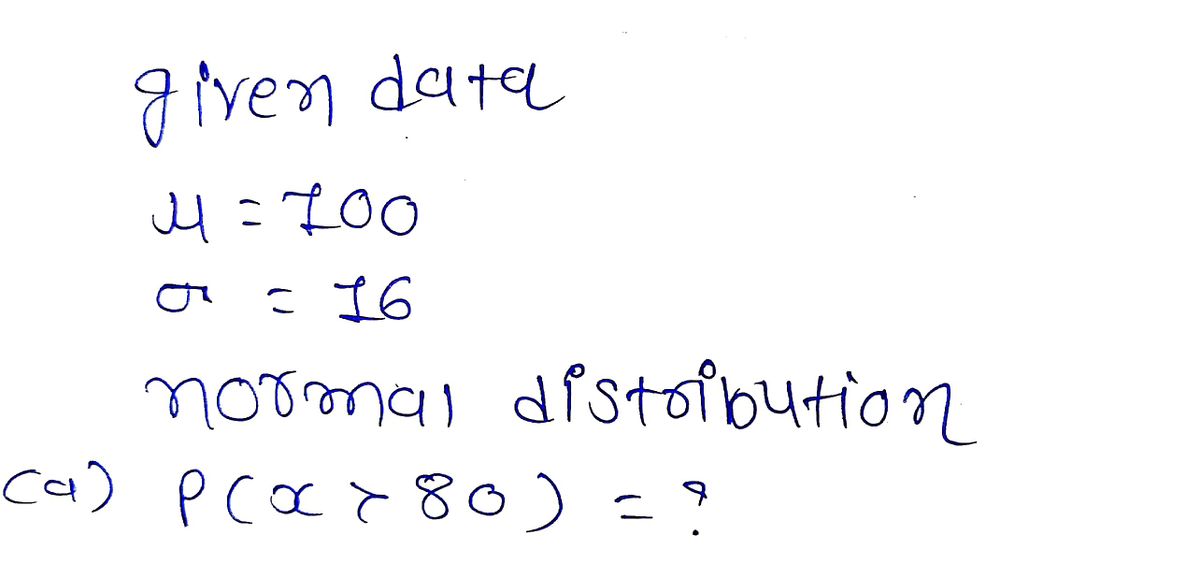 given data
μ = 100
σ = 16
normal distribution
(a) P(x > 80) = ?